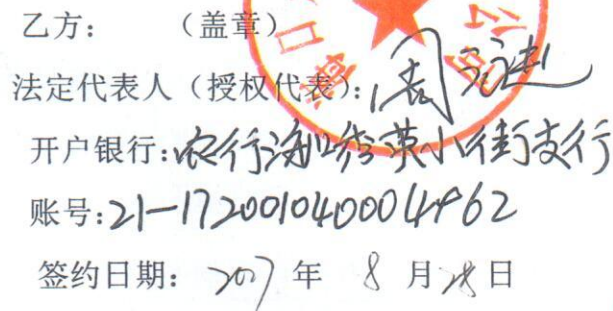 乙方： （盖章）
法定代表人（授权代表）：周
开户银行：农行海口秀英小街支行
账号：21-172001040004962
签约日期： 2007 年 8 月 28 日